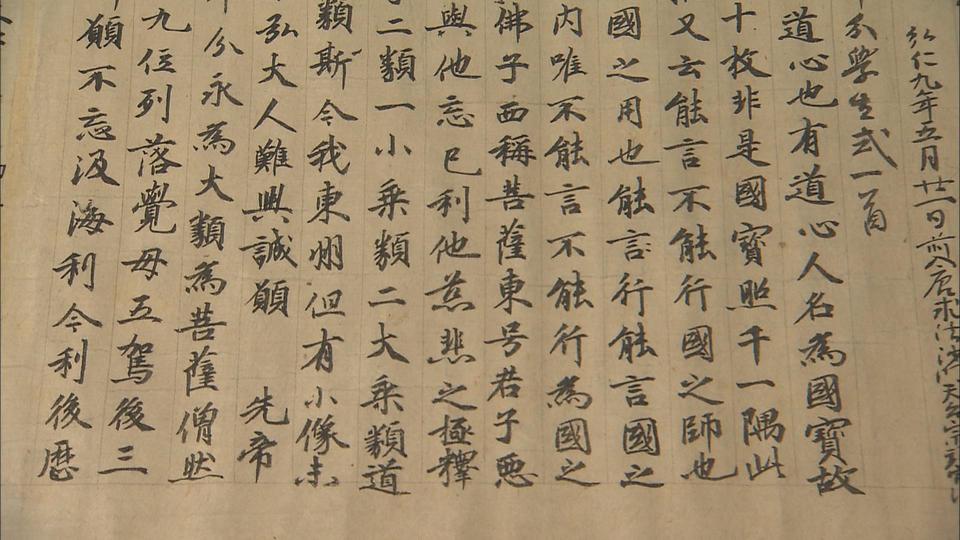 弘仁九年五月廿一日前入唐求法
分學生式一首
道心也有道心人名為國寶故
十枚非是國寶照千一隅此
又云能言不能行國之師也
國之用也能言行能言國之
内唯不能言不能行為國之
佛子西稱菩薩東号君子悪
與他忘己利他慈悲之極釋
二類一小乘類二大乘類道
類斯今我東州但有小像未
弘大人難興誠願 先帝
分永為大類為菩薩僧然
九位列落覺母五駕後三
願不忘汲海利今利後歴